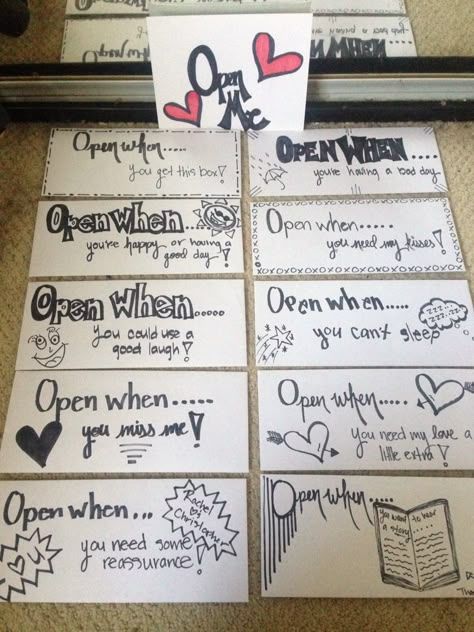 Open
Me
Open when....
You get this box!
OPEN WHEN....
you're having a bad day
Open when...
you're happy or having a
good day!
Open when.....
you need my kisses!
Open when.....
You could use a
good laugh!
Open when.....
you can't sleep
zzz..
zz..zz
Open when.....
you miss me!
Open when.....
You need my love a
little extra!
Open when...
you need some
reassurance!
Rachel
Christopher
Open when.....
you want to hear
a story....